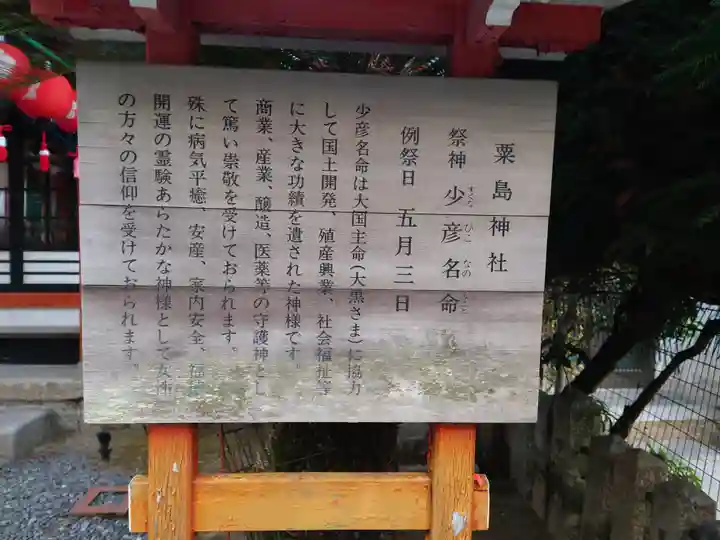 粟島神社
祭神 少彦名命
すくな ひこ なの みこと
例祭日 五月三日
少彦名命は大国主命(大黒さま)に協力
して国土開発、殖産興業、社会福祉等
に大きな功績を遺された神様です。
商業、産業、醸造、医薬等の守護神とし
て篤い崇敬を受けております。
殊に病気平癒、安産、家内安全、福
開運の霊験あらたかな神様として女性
の方々の信仰を受けておられます。